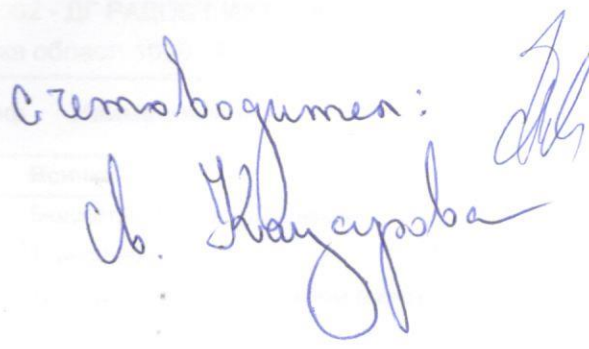 счетоводител:
Св. Кацарова